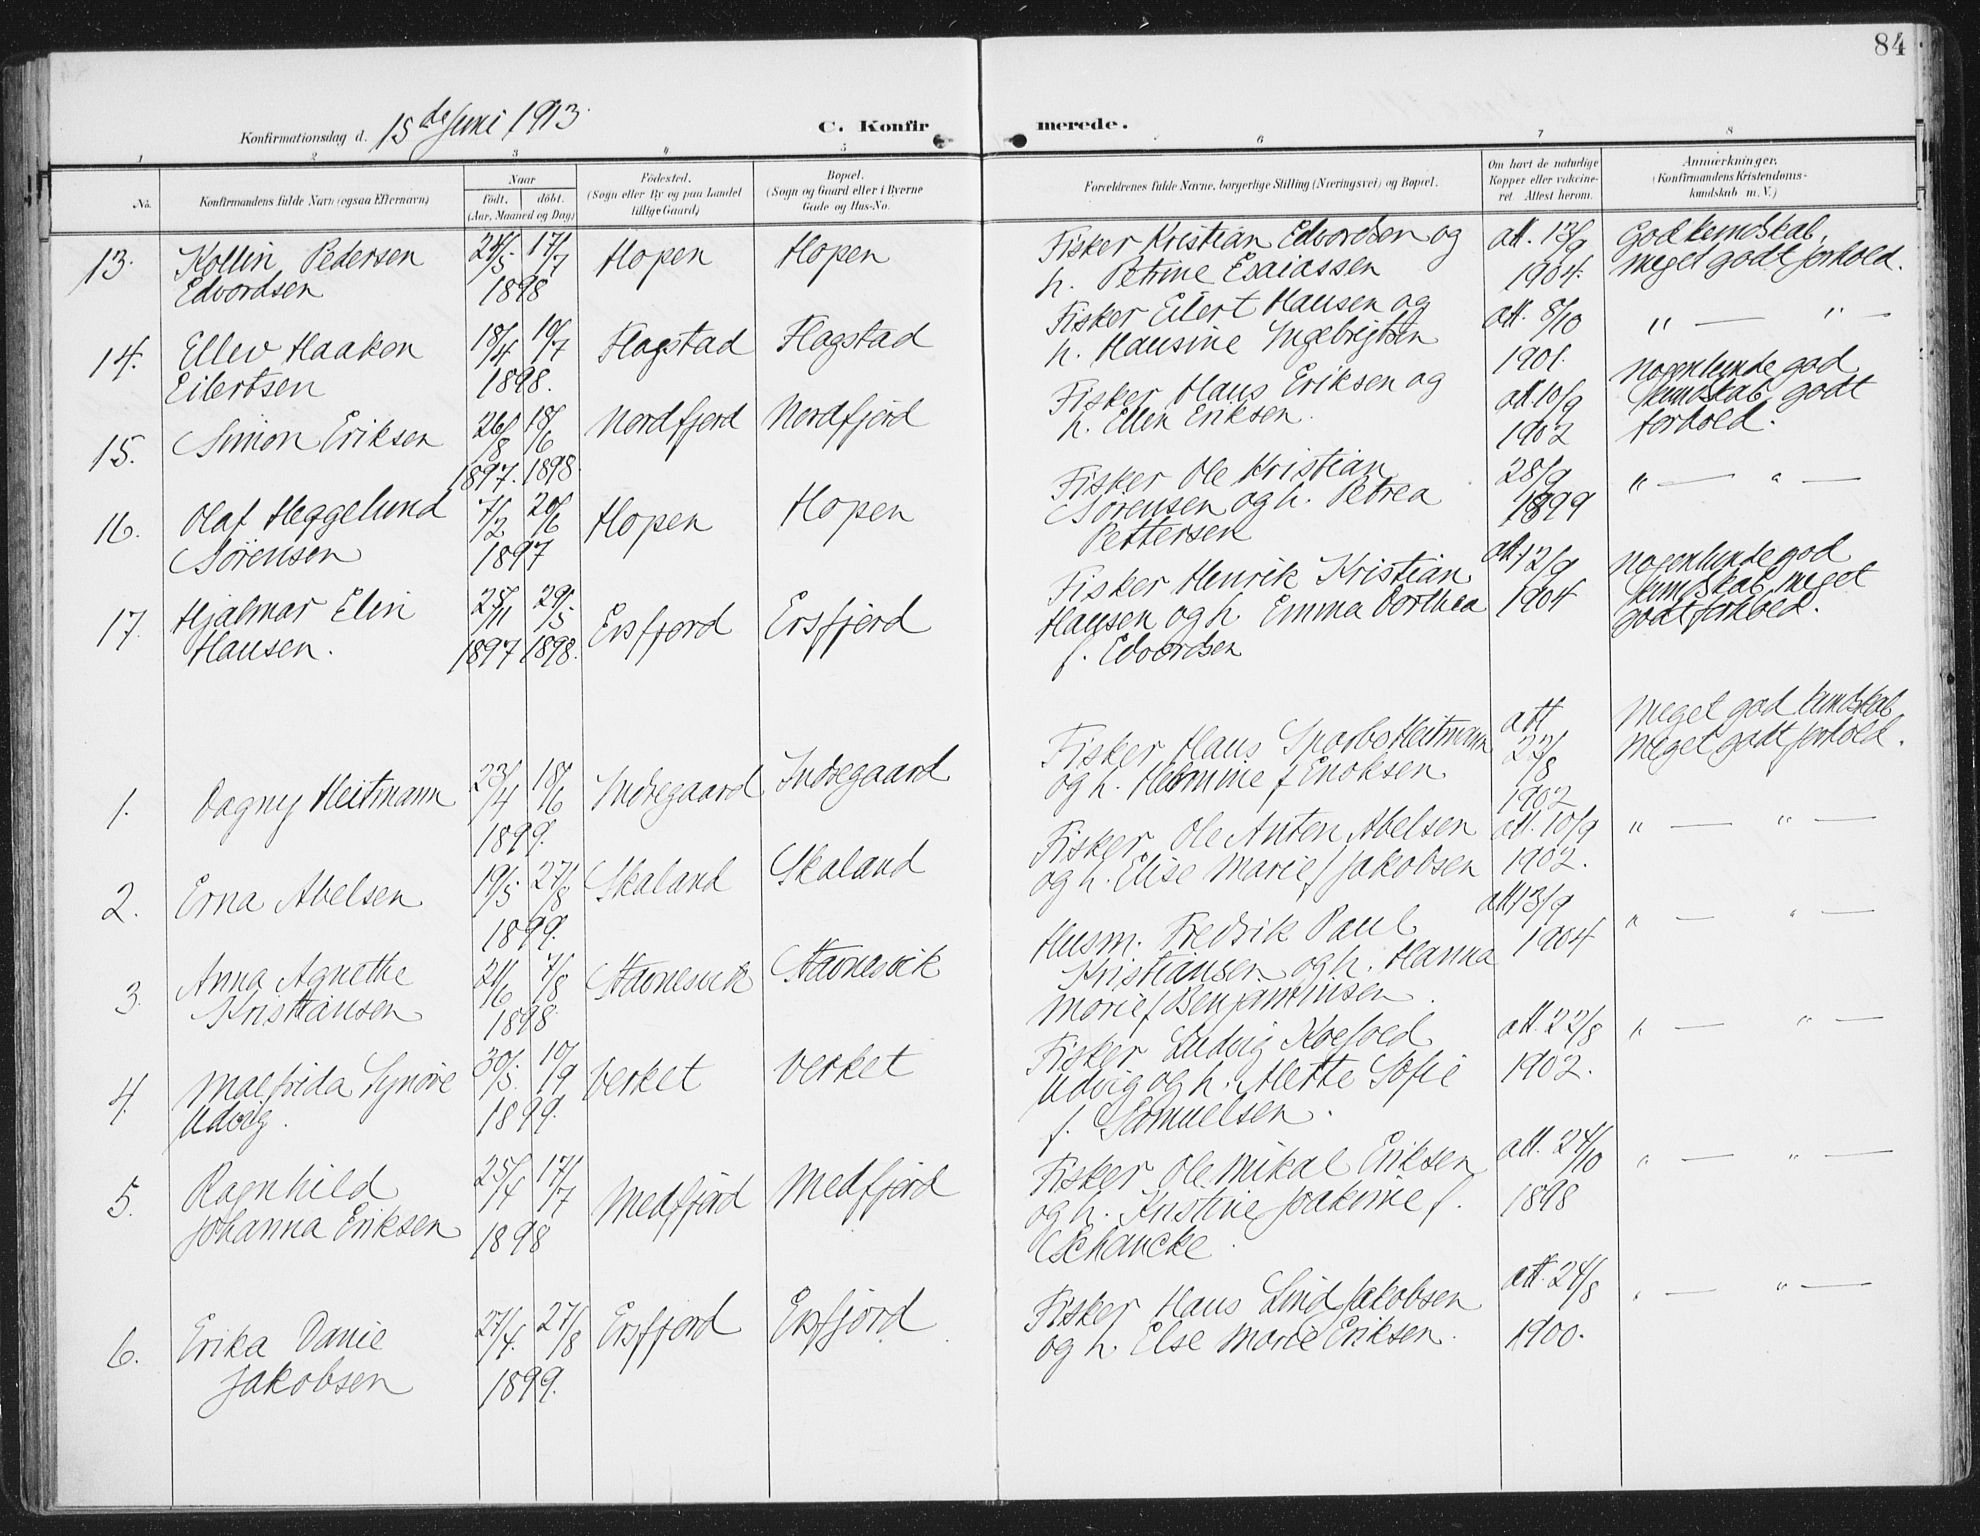 84
Konfirmationsdag d. 15de Juni 1913.
C. Konfirmerede.
1 2 3 4 5 6 7 8
No.
Konfirmandens fulde Navn (ogsaa Efternavn)
Naar
födt. döbt.
(Aar, Maaned og Dag)
Födested.
(Sogn eller By og paa Landet
tillige Gaard)
Bopæl.
(Sogn og Gaard eller i Byerne
Gade og Hus-No.
Forældrenes fulde Navne, borgerlige Stilling (Næringsvei) og Bopæl.
Om havt de naturlige
Kopper eller vakcine-
ret. Attest herom.
Anmærkninger.
(Konfirmandens Kristendoms-
kundskab m. V.)
13. Kollin Pedersen
Edvardsen
24/5 17/7
1898
Hopen
Hopen
Fisker Kristian Edvardsen og
h. Petrine Esaiassen
att. 13/9
1904.
God kundskab,
meget godt forhold.
14. Ellev Haakon
Eilertsen
18/4 10/7
1898.
Flagstad
Flagstad
Fisker Eilert Hansen og
h. Hansine Ingebrigtsen
att. 8/10
1901.
" — " —
15. Simon Eriksen
26/8 18/6
1897. 1898.
Nordfjord
Nordfjord
Fisker Hans Eriksen og
h. Ellen Eriksen.
att. 10/9
1902
nogenlunde god
kundskab, godt
forhold.
16. Olaf Heggelund
Sörensen
7/2 20/6
1897
Hopen
Hopen
Fisker Ole Kristian
Sörensen og h. Petrea
Pettersen
28/9
1899
" — " —
17. Hjalmar Elin
Hansen.
25/11 29/5
1897 1898.
Ersfjord
Ersfjord
Fisker Henrik Kristian
Hansen og h. Emma Dorthea
f. Edvardsen
att. 12/9
1904
nogenlunde god
kundskab, meget
godt forhold.
1. Dagny Heitmann
23/4 18/6
1899.
Indregaard
Indregaard
Fisker Hans Sparbo Heitmann
og h. Hermine f Enoksen
att
22/8
1902
Meget god kundskab,
meget godt forhold.
2. Erna Abelsen
19/5. 27/8
1899.
Skaland
Skaland
Fisker Ole Anton Abelsen
og h. Elise Marie f Jakobsen
att. 10/9
1902.
" — " —
3. Anna Agnethe
Kristiansen
21/6 7/8
1898
Stavnesvik
Stavnesvik
Husm. Fredrik Paul
Kristiansen og h. Hanna
Marie f Benjaminsen.
att 13/9
1904
" — " —
4. Malfrida Synöve
Udvig.
30/5. 10/9
1899.
Verket
Verket
Fisker Ludvig Koefoed
Udvig og h. Mette Sofie
f. Samuelsen.
att. 22/8
1902.
" — " —
5. Ragnhild
Johanna Eriksen
25/4 17/7
1898
Medfjord
Medfjord
Fisker Ole Mikal Eriksen
og h. Kristine Joakime f.
Schancke.
att. 24/10
1898
" — " —
6. Erika Danie
Jakobsen
27/4. 27/8
1899.
Ersfjord
Ersfjord
Fisker Hans Lind Jakobsen
og h. Else Marie Eriksen.
att. 24/8
1900.
" — " —